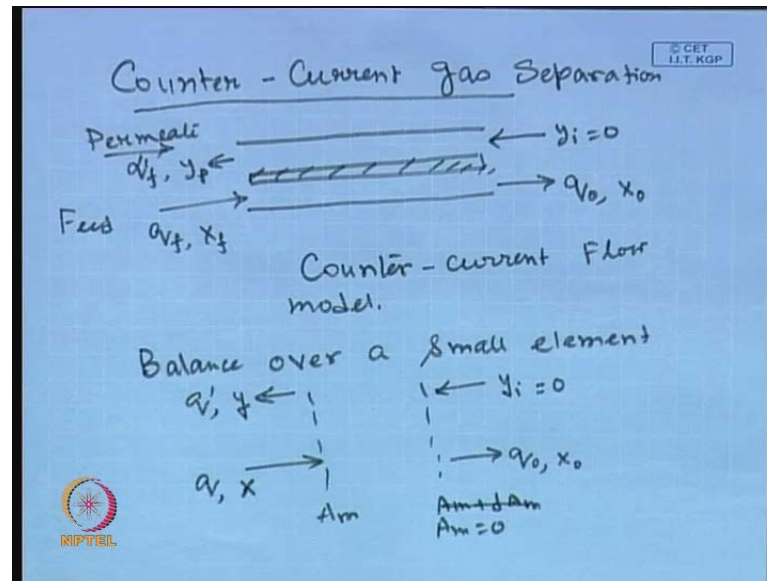 © CET
I.I.T. KGP
Counter - Current gas Separation
Permeali
q'f, yp ← ← yi = 0
→ q0, x0
Feed qf, xf
Counter - current Flow
model.
Balance over a small element
q', y ← ← yi = 0
q, x → → q0, x0
Am Am + dAm
Am = 0
NPTEL